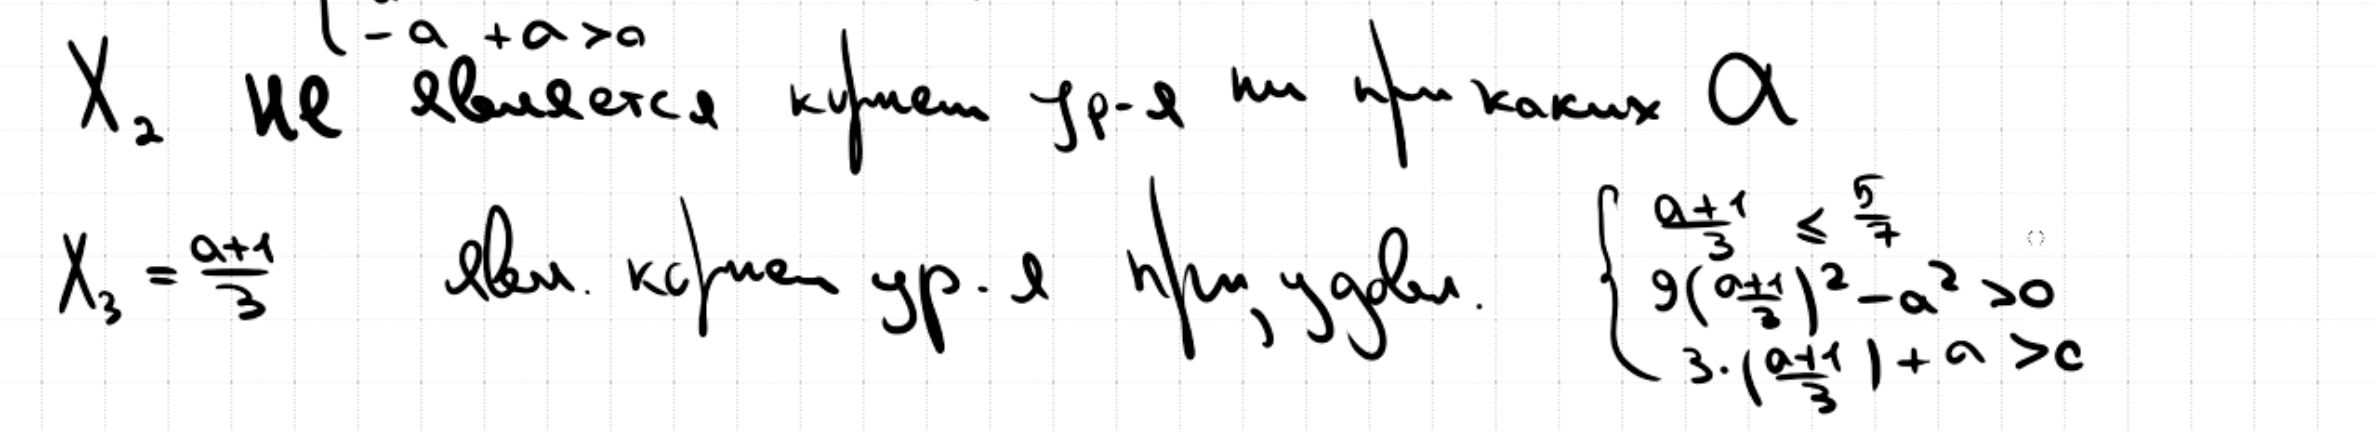 { -a + a > 0
X₂ не является корнем ур-я ни при каких a
X₃ = (a+1)/3 явл. корнем ур-я при, удовл. { (a+1)/3 ≤ 5/7
9((a+1)/3)² - a² > 0
3·((a+1)/3) + a > 0